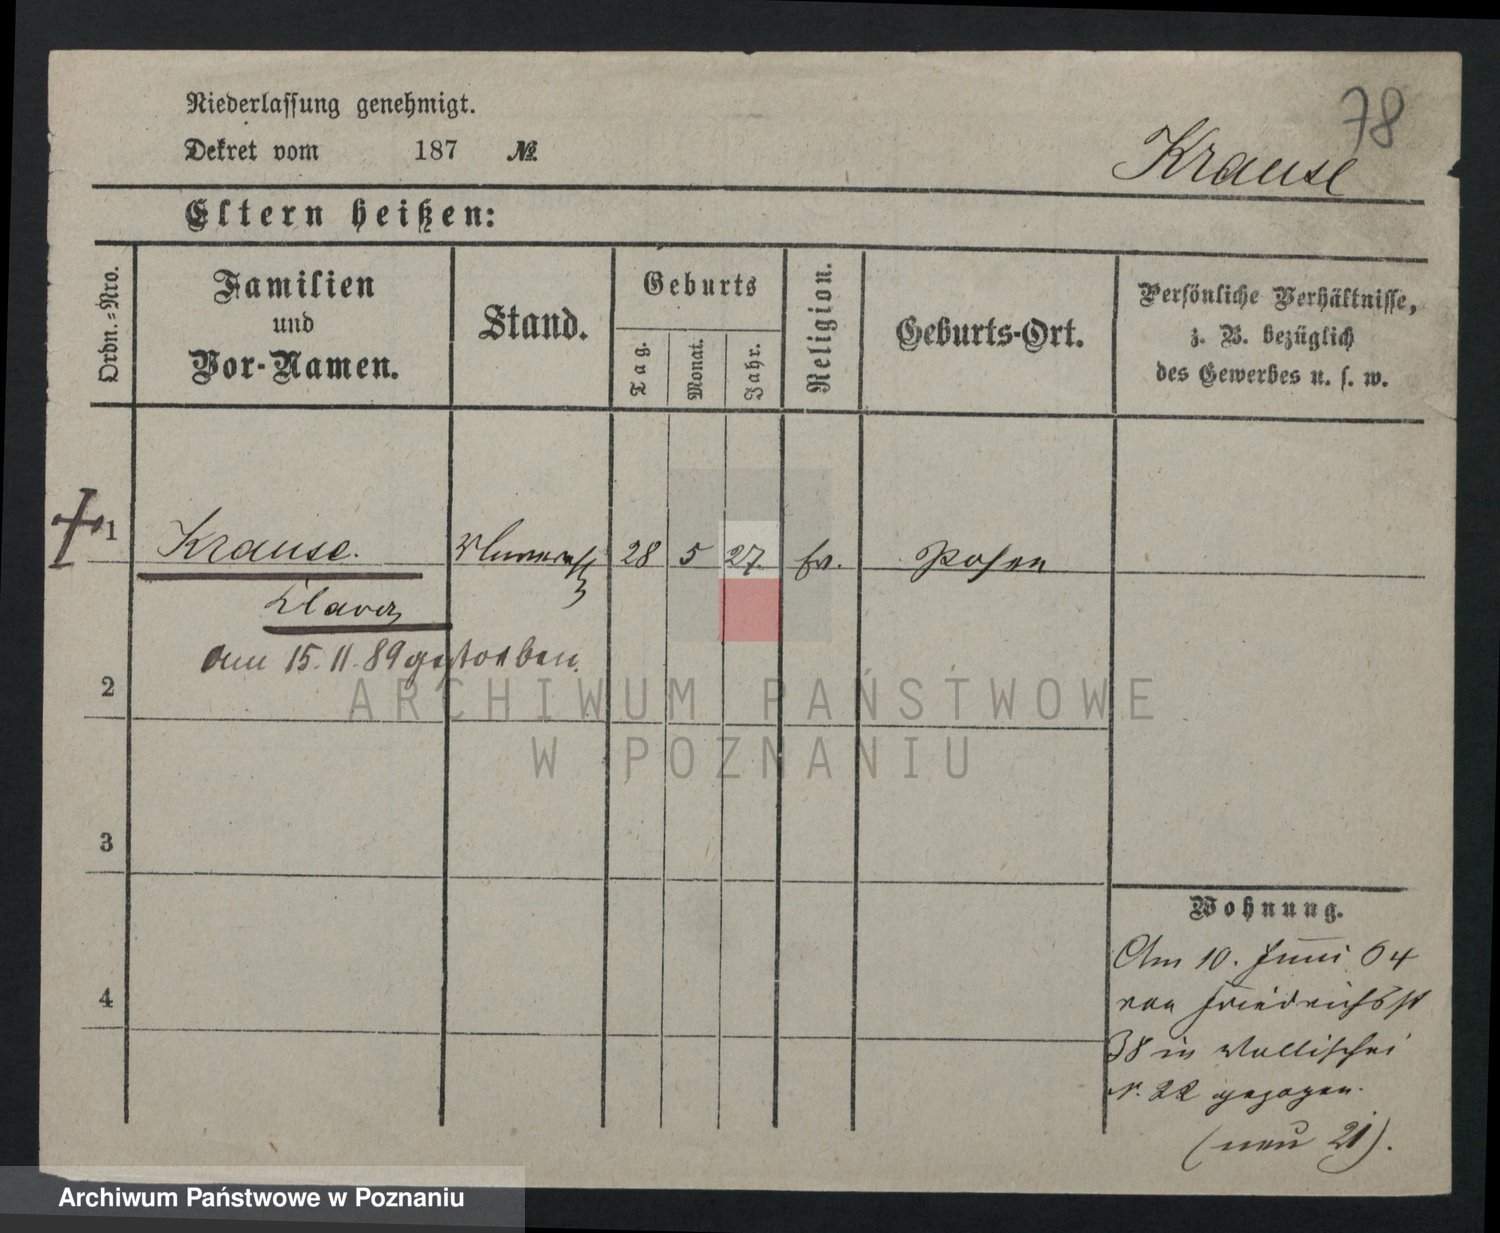 Niederlassung genehmigt.
Dekret vom 187 №
78
Krause
Eltern heißen:
Ordn.=Nro.
Familien
und
Vor-Namen.
Stand.
Geburts
Tag.
Monat.
Jahr.
Religion.
Geburts-Ort.
Persönliche Verhältnisse,
z. B. bezüglich
des Gewerbes u. s. w.
1 Krause. 28 5 27. ev. Posen
am 15.11.89 gestorben.
2
3
4
Wohnung.
Am 10. Juni 64
von Friedrichsst
38 in Wallischei
N. 22 gezogen.
(neu 21).
ARCHIWUM PAŃSTWOWE
W POZNANIU
Archiwum Państwowe w Poznaniu